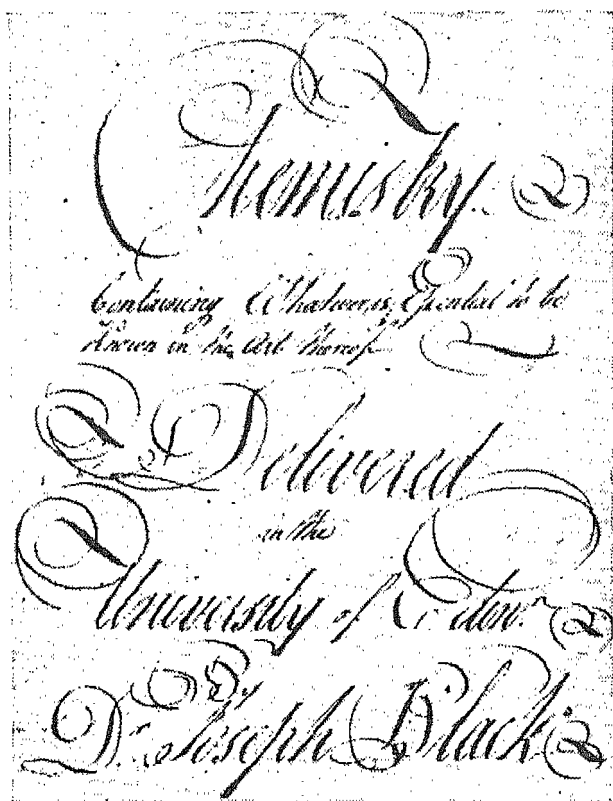 Chemistry
Containing Whatever is Essential to be
Known in the Art thereof
Delivered
in the
University of
By
Dr. Joseph Black